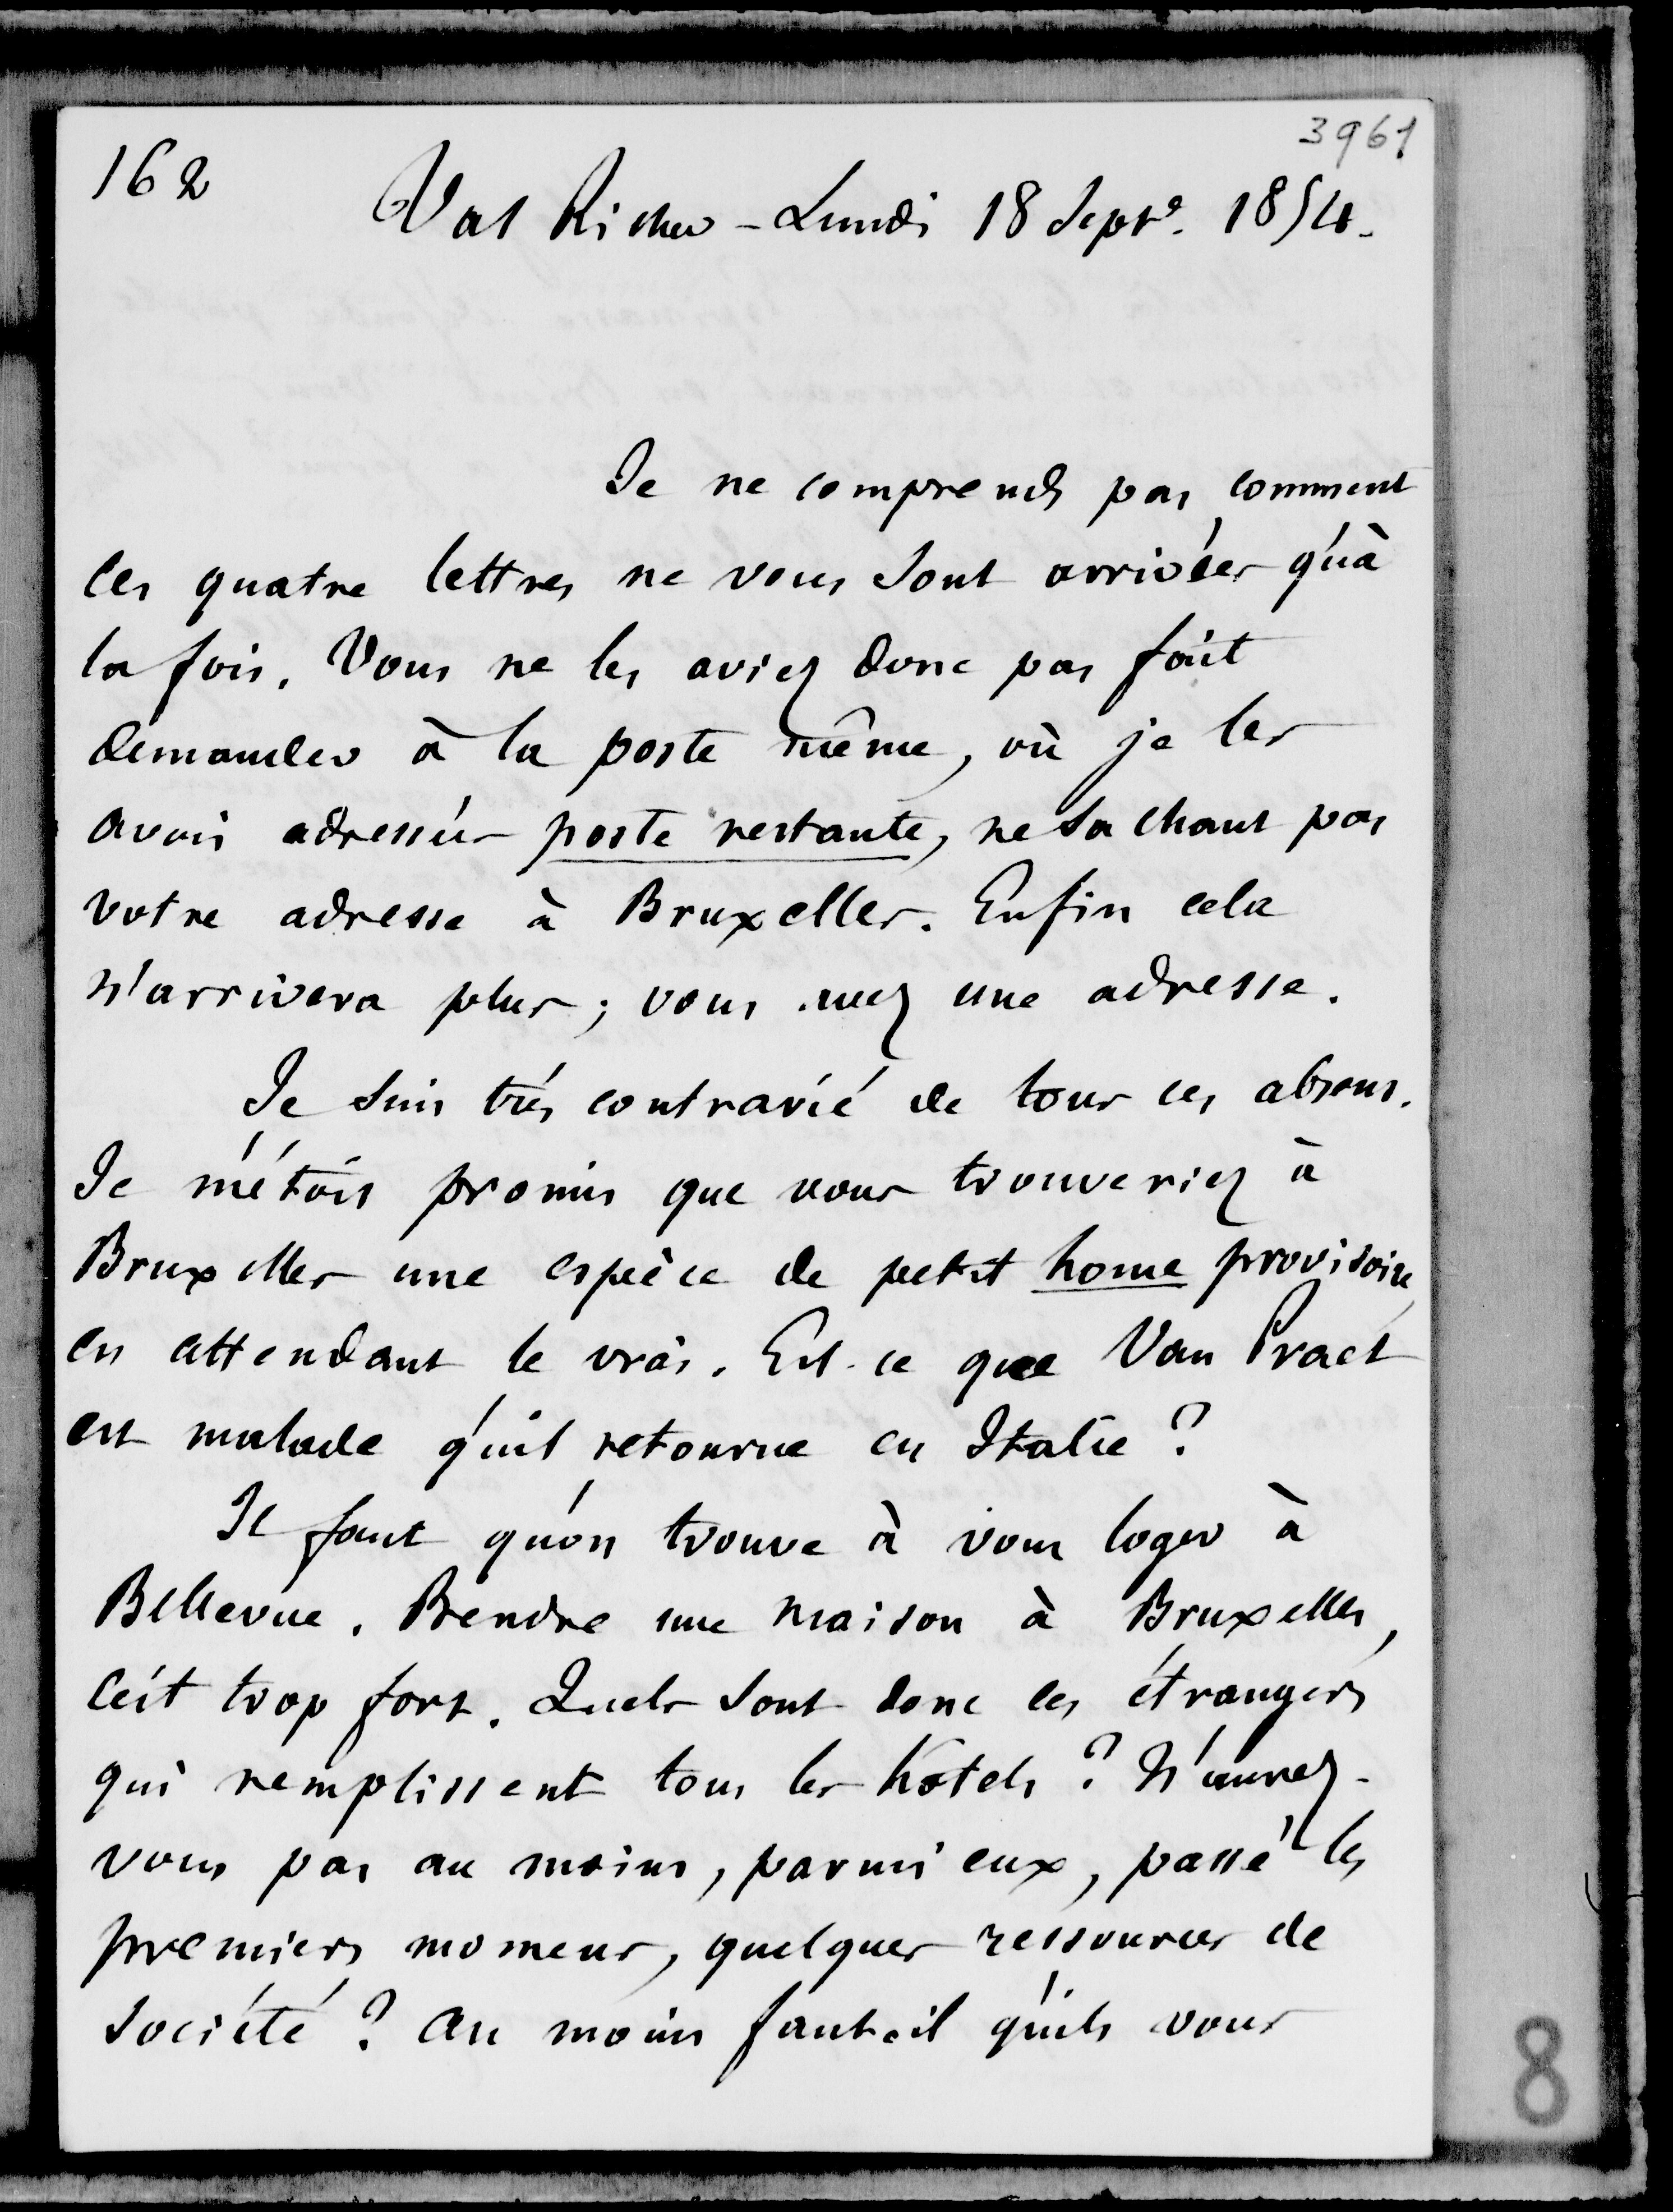 3961
162
Val Richer - Lundi 18 Sept.e 1854.
Je ne comprends pas comment
ces quatre lettres ne vous sont arrivées qu'à
la fois. Vous ne les aviez donc pas fait
demander à la poste même, où je les
avais adressées poste restante, ne sachant pas
votre adresse à Bruxelles. Enfin cela
n'arrivera plus ; vous avez une adresse.
Je suis très contrarié de tous ces absens.
Je m'étais promis que vous trouveriez à
Bruxelles une espèce de petit home provisoire,
en attendant le vrai. Est-ce que Van Praet
est malade qu'il retourne en Italie ?
Il faut qu'on trouve à vous loger à
Bellevue. Prendre une maison à Bruxelles,
c'est trop fort. Quels sont donc ces étrangers
qui remplissent tous les hôtels ? N'aurez-
vous pas au moins, parmi eux, passé les
premiers momens, quelques ressources de
société ? Au moins faut-il qu'ils vous
8